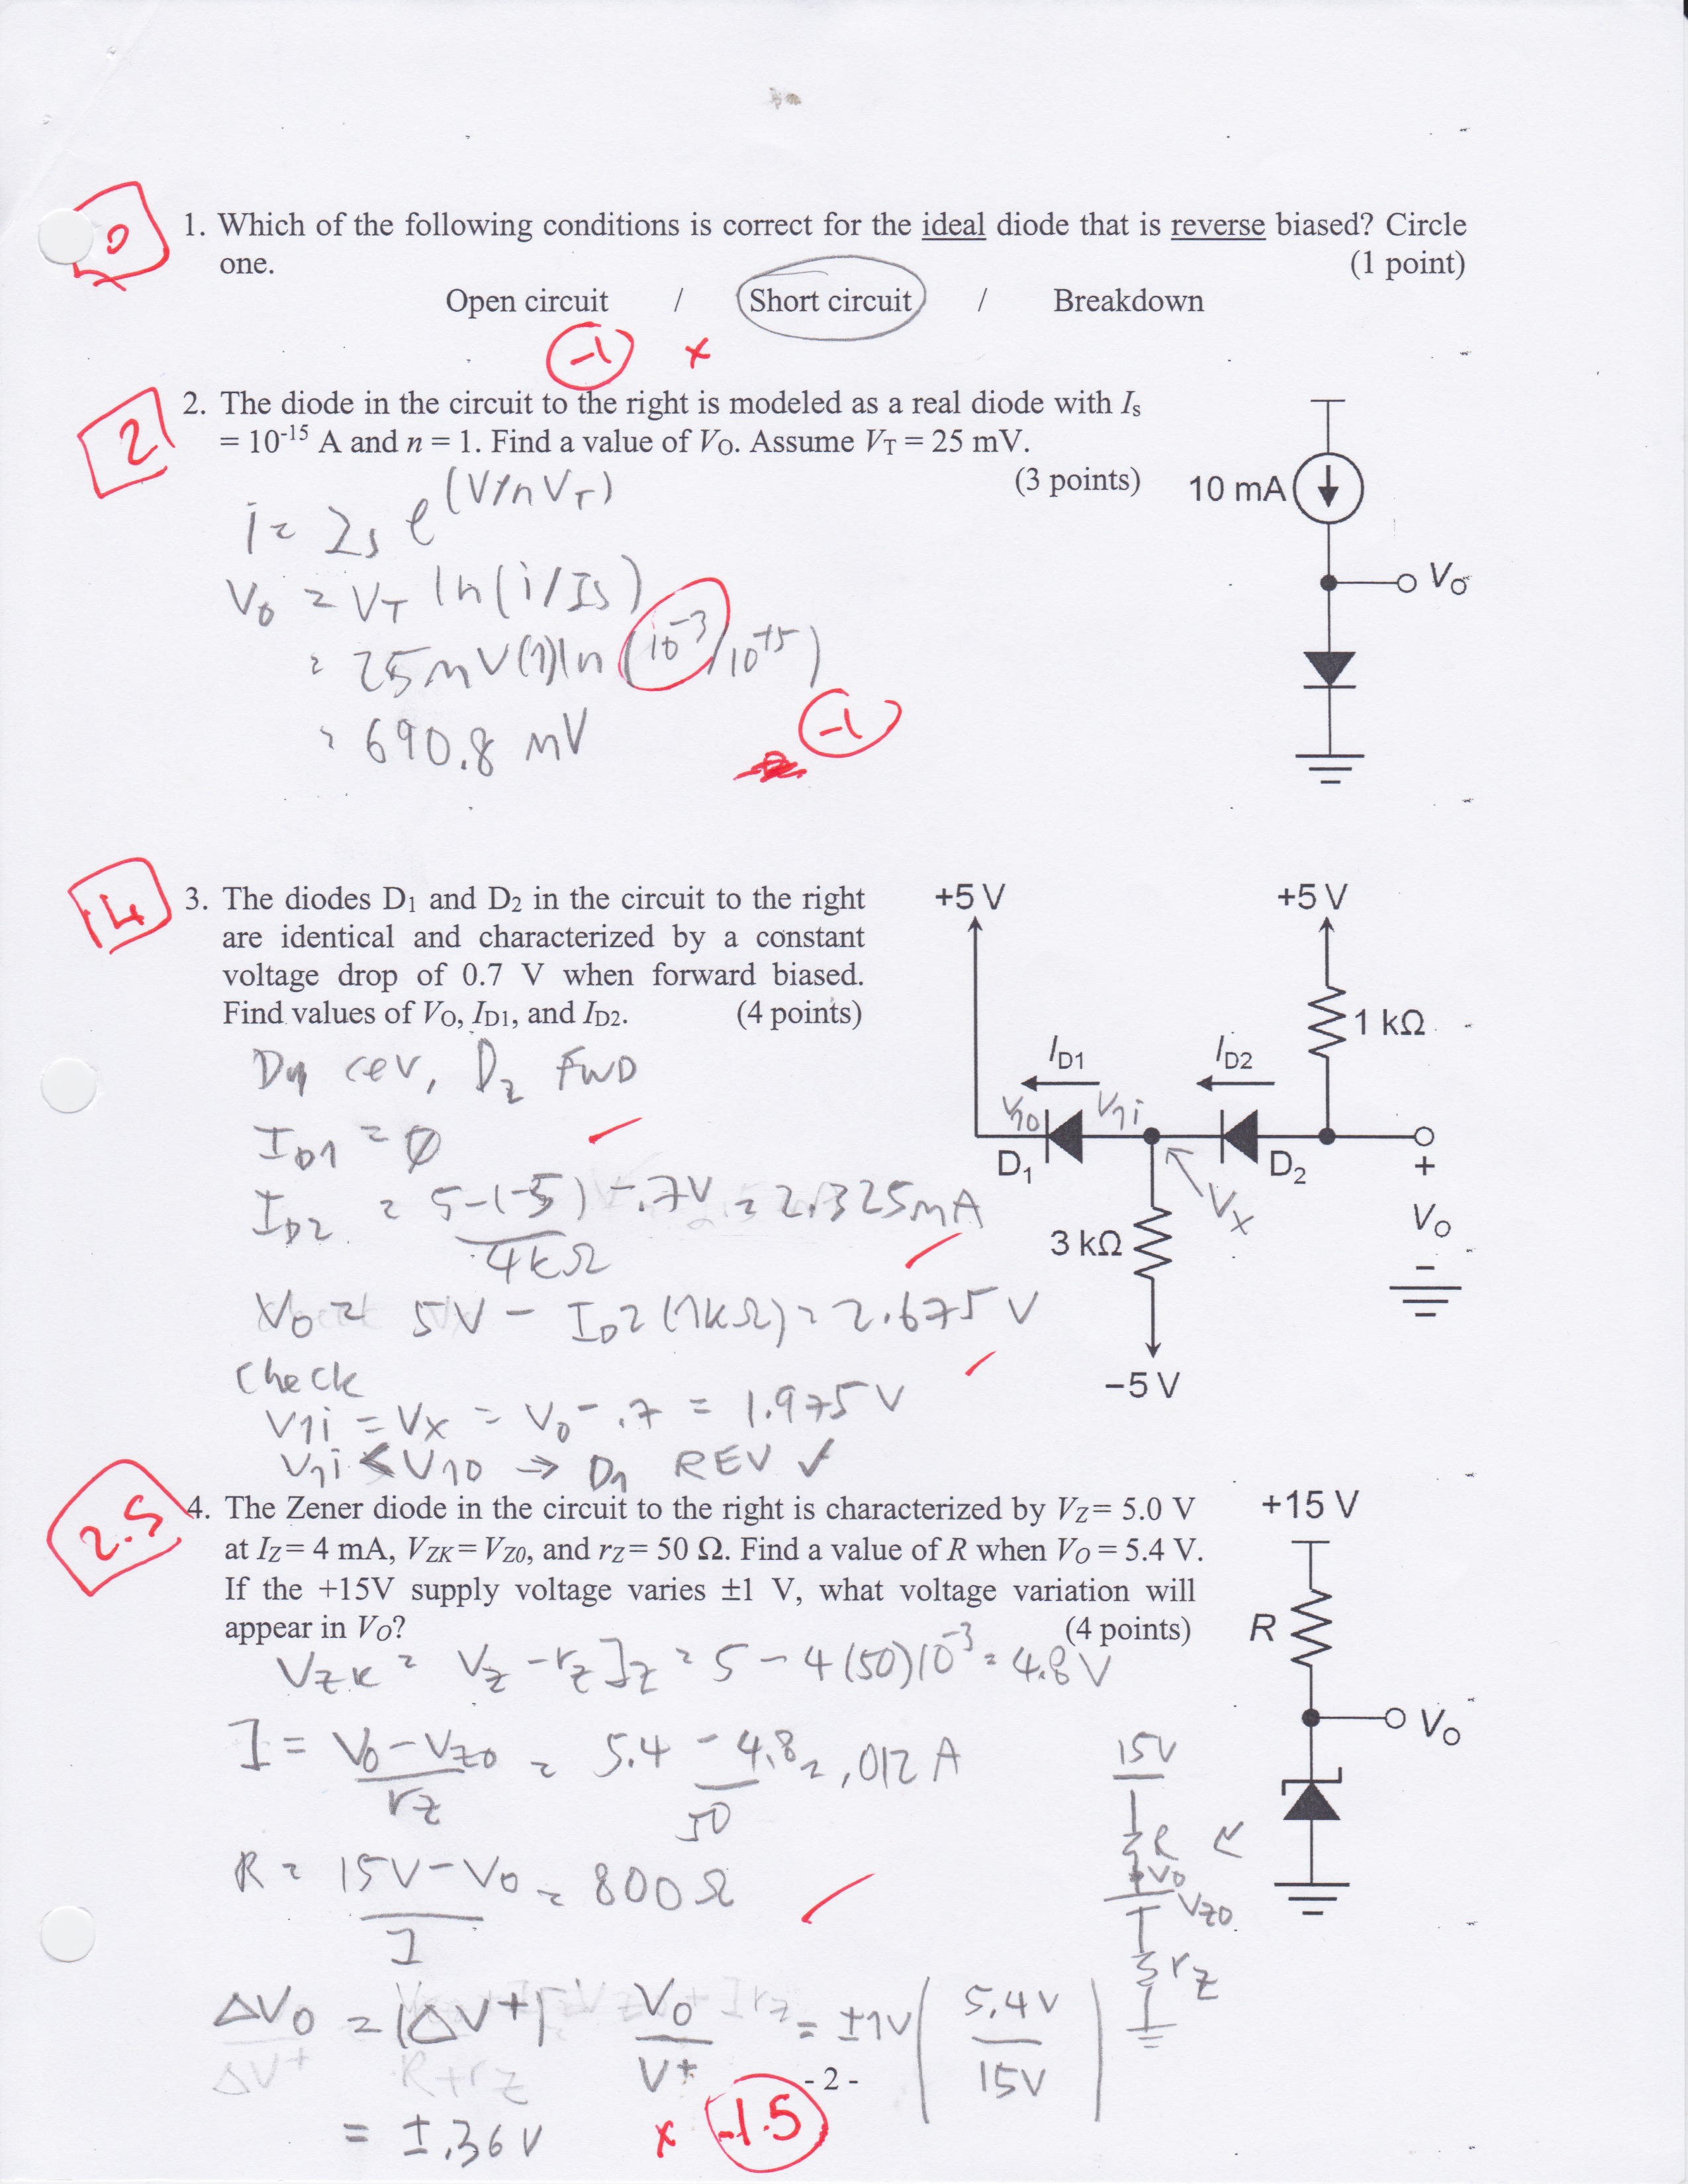 0
1. Which of the following conditions is correct for the ideal diode that is reverse biased? Circle
one. (1 point)
Open circuit / Short circuit / Breakdown
-1 x
2
2. The diode in the circuit to the right is modeled as a real diode with Is
= 10-15 A and n = 1. Find a value of VO. Assume VT = 25 mV.
(3 points)
i = Is e(V/nVT)
VO = VT ln(i/Is)
= 25mV(1)ln(10-3/10-15)
= 690.8 mV
-1
10 mA
VO
4
3. The diodes D1 and D2 in the circuit to the right
are identical and characterized by a constant
voltage drop of 0.7 V when forward biased.
Find values of VO, ID1, and ID2. (4 points)
D1 rev, D2 FWD
ID1 = Ø
ID2 = 5-(-5) -.7V = 2.325mA
4kΩ
VO = 5V - ID2(1kΩ) = 2.675 V
check
V1i = Vx = VO - .7 = 1.975 V
V1i < V10 → D1 REV ✓
+5 V +5 V
1 kΩ
ID1 ID2
V10 V1i
D1 D2
+
Vx
3 kΩ
VO
-
−5 V
2.5
4. The Zener diode in the circuit to the right is characterized by VZ= 5.0 V
at IZ= 4 mA, VZK= VZ0, and rZ= 50 Ω. Find a value of R when VO = 5.4 V.
If the +15V supply voltage varies ±1 V, what voltage variation will
appear in VO? (4 points)
VZK = VZ - rZ IZ = 5 - 4(50)10-3 = 4.8 V
I = VO - VZ0 = 5.4 - 4.8 = .012 A
rZ 50
R = 15V - VO = 800Ω
I
ΔVO = (ΔV+) VO = ±1V (5.4V
ΔV+ R+rZ V+ 15V)
= ±.36 V
x -1.5
+15 V
R
VO
15V
R
VO
VZ0
rZ
- 2 -